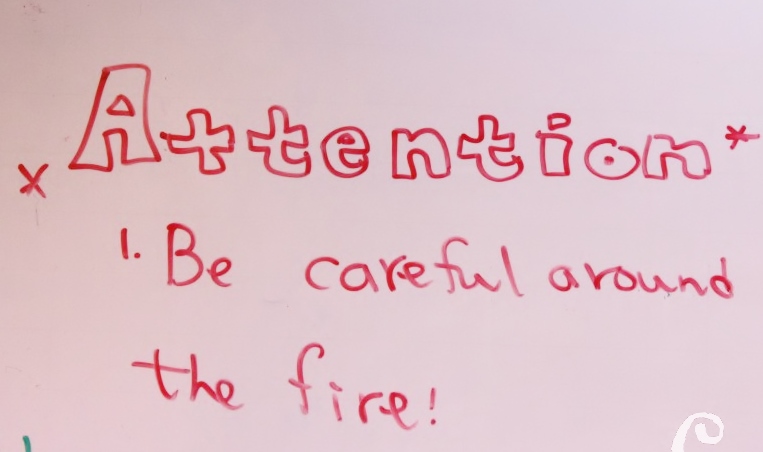 * Attention *
1. Be careful around
the fire!